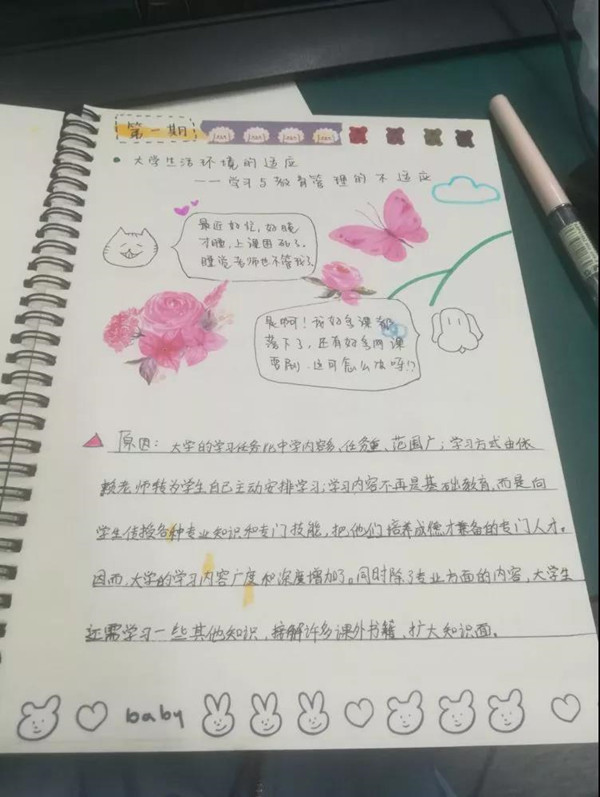 第一期
大学生活环境的适应
——学习与教育管理的不适应
最近好忙,好晚
才睡,上课困死了,
睡觉老师也不管我了
是啊!我好多课都
落下了,还有好多网课
要刷,这可怎么办呀!?
原因:大学的学习任务比中学内容多、任务重、范围广;学习方式由依
赖老师转为学生自己主动安排学习;学习内容不再是基础教育,而是向
学生传授各种专业知识和专门技能,把他们培养成德才兼备的专门人才。
因而,大学的学习内容广度和深度增加了。同时除了专业方面的内容,大学生
还需学习一些其他知识,接解许多课外书籍,扩大知识面。
baby